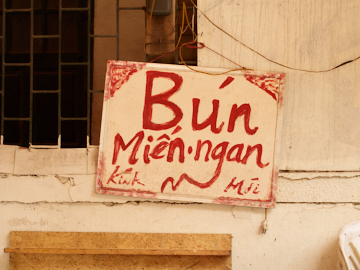 Bún
Miến·ngan
Kính Mời